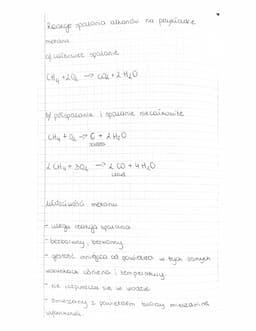 Reakcje spalania alkanów na przykładzie
metanu
a) całkowite spalanie
CH4 + 2O2 → CO2 + 2H2O
b) półspalanie i spalanie niecałkowite
CH4 + O2 → C + 2H2O
sadza
2CH4 + 3O2 → 2CO + 4H2O
czad
Właściwości metanu
- ulega reakcji spalania
- bezbarwny, bezwonny
- gęstość mniejsza od powietrza w tych samych
warunkach ciśnienia i temperatury
- nie rozpuszcza się w wodzie
- zmieszany z powietrzem tworzy mieszaninę
wybuchową.